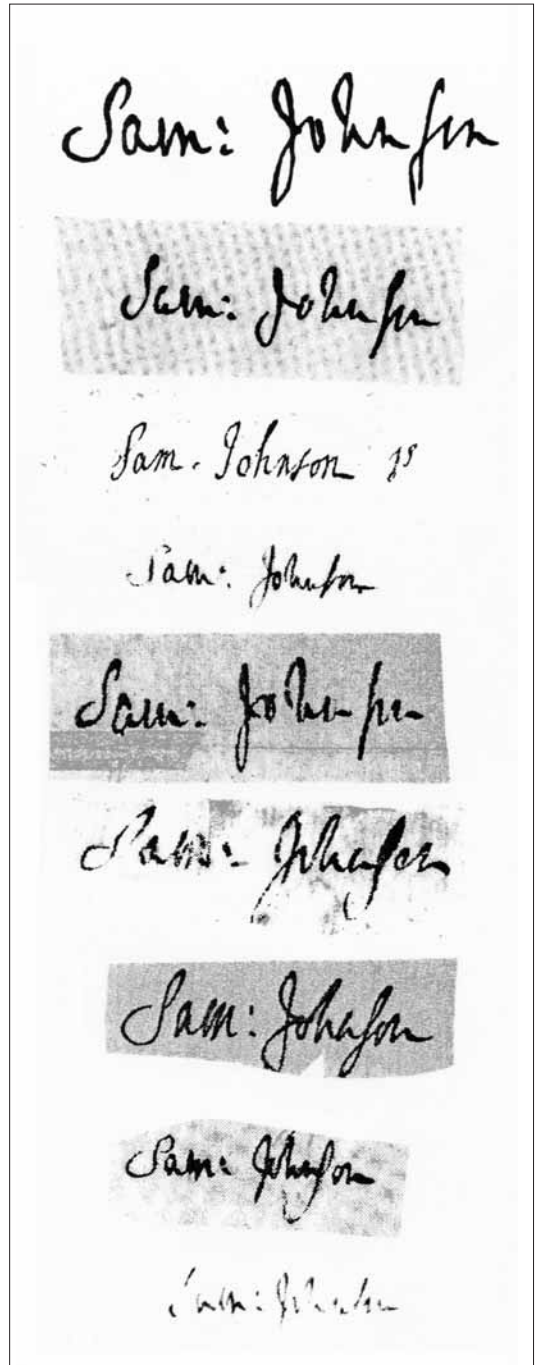 Sam: Johnson
Sam: Johnson
Sam. Johnson
Sam: Johnson
Sam: Johnson
Sam: Johnson
Sam: Johnson
Sam: Johnson
Sam: Johnson